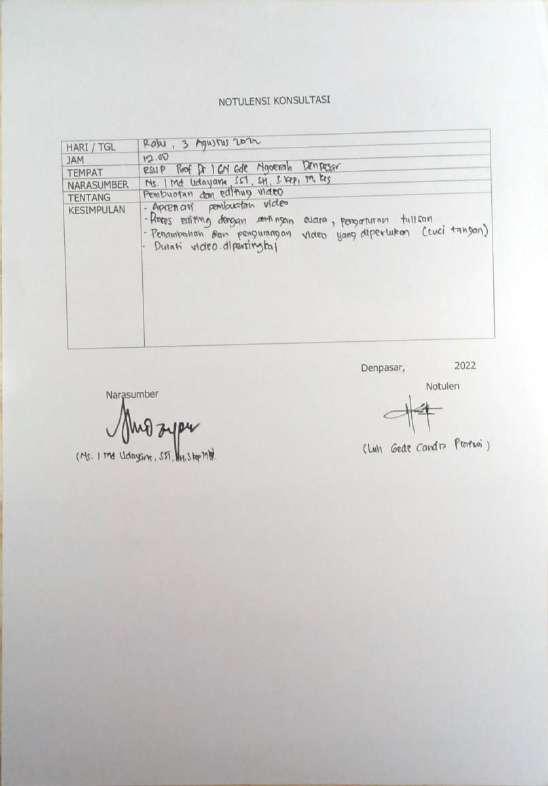 NOTULENSI KONSULTASI
HARI / TGL Rabu, 3 Agustus 2022
JAM 12.00
TEMPAT RSUP Prof Dr I GN Gde Ngoerah Denpasar
NARASUMBER Ns. I Md Udayana SST, SH, S.Kep, M.Kes
TENTANG Pembuatan dan editing video
KESIMPULAN - Apresiasi pembuatan video
- Proses editing dengan suara, pengaturan tulisan
- Penambahan dan pengurangan video yang diperlukan (cuci tangan)
- Durasi video
Denpasar, 2022
Narasumber Notulen
(Ns. I Md Udayana, SST, SH, S.Kep (Luh Gede Candra Pratiwi)